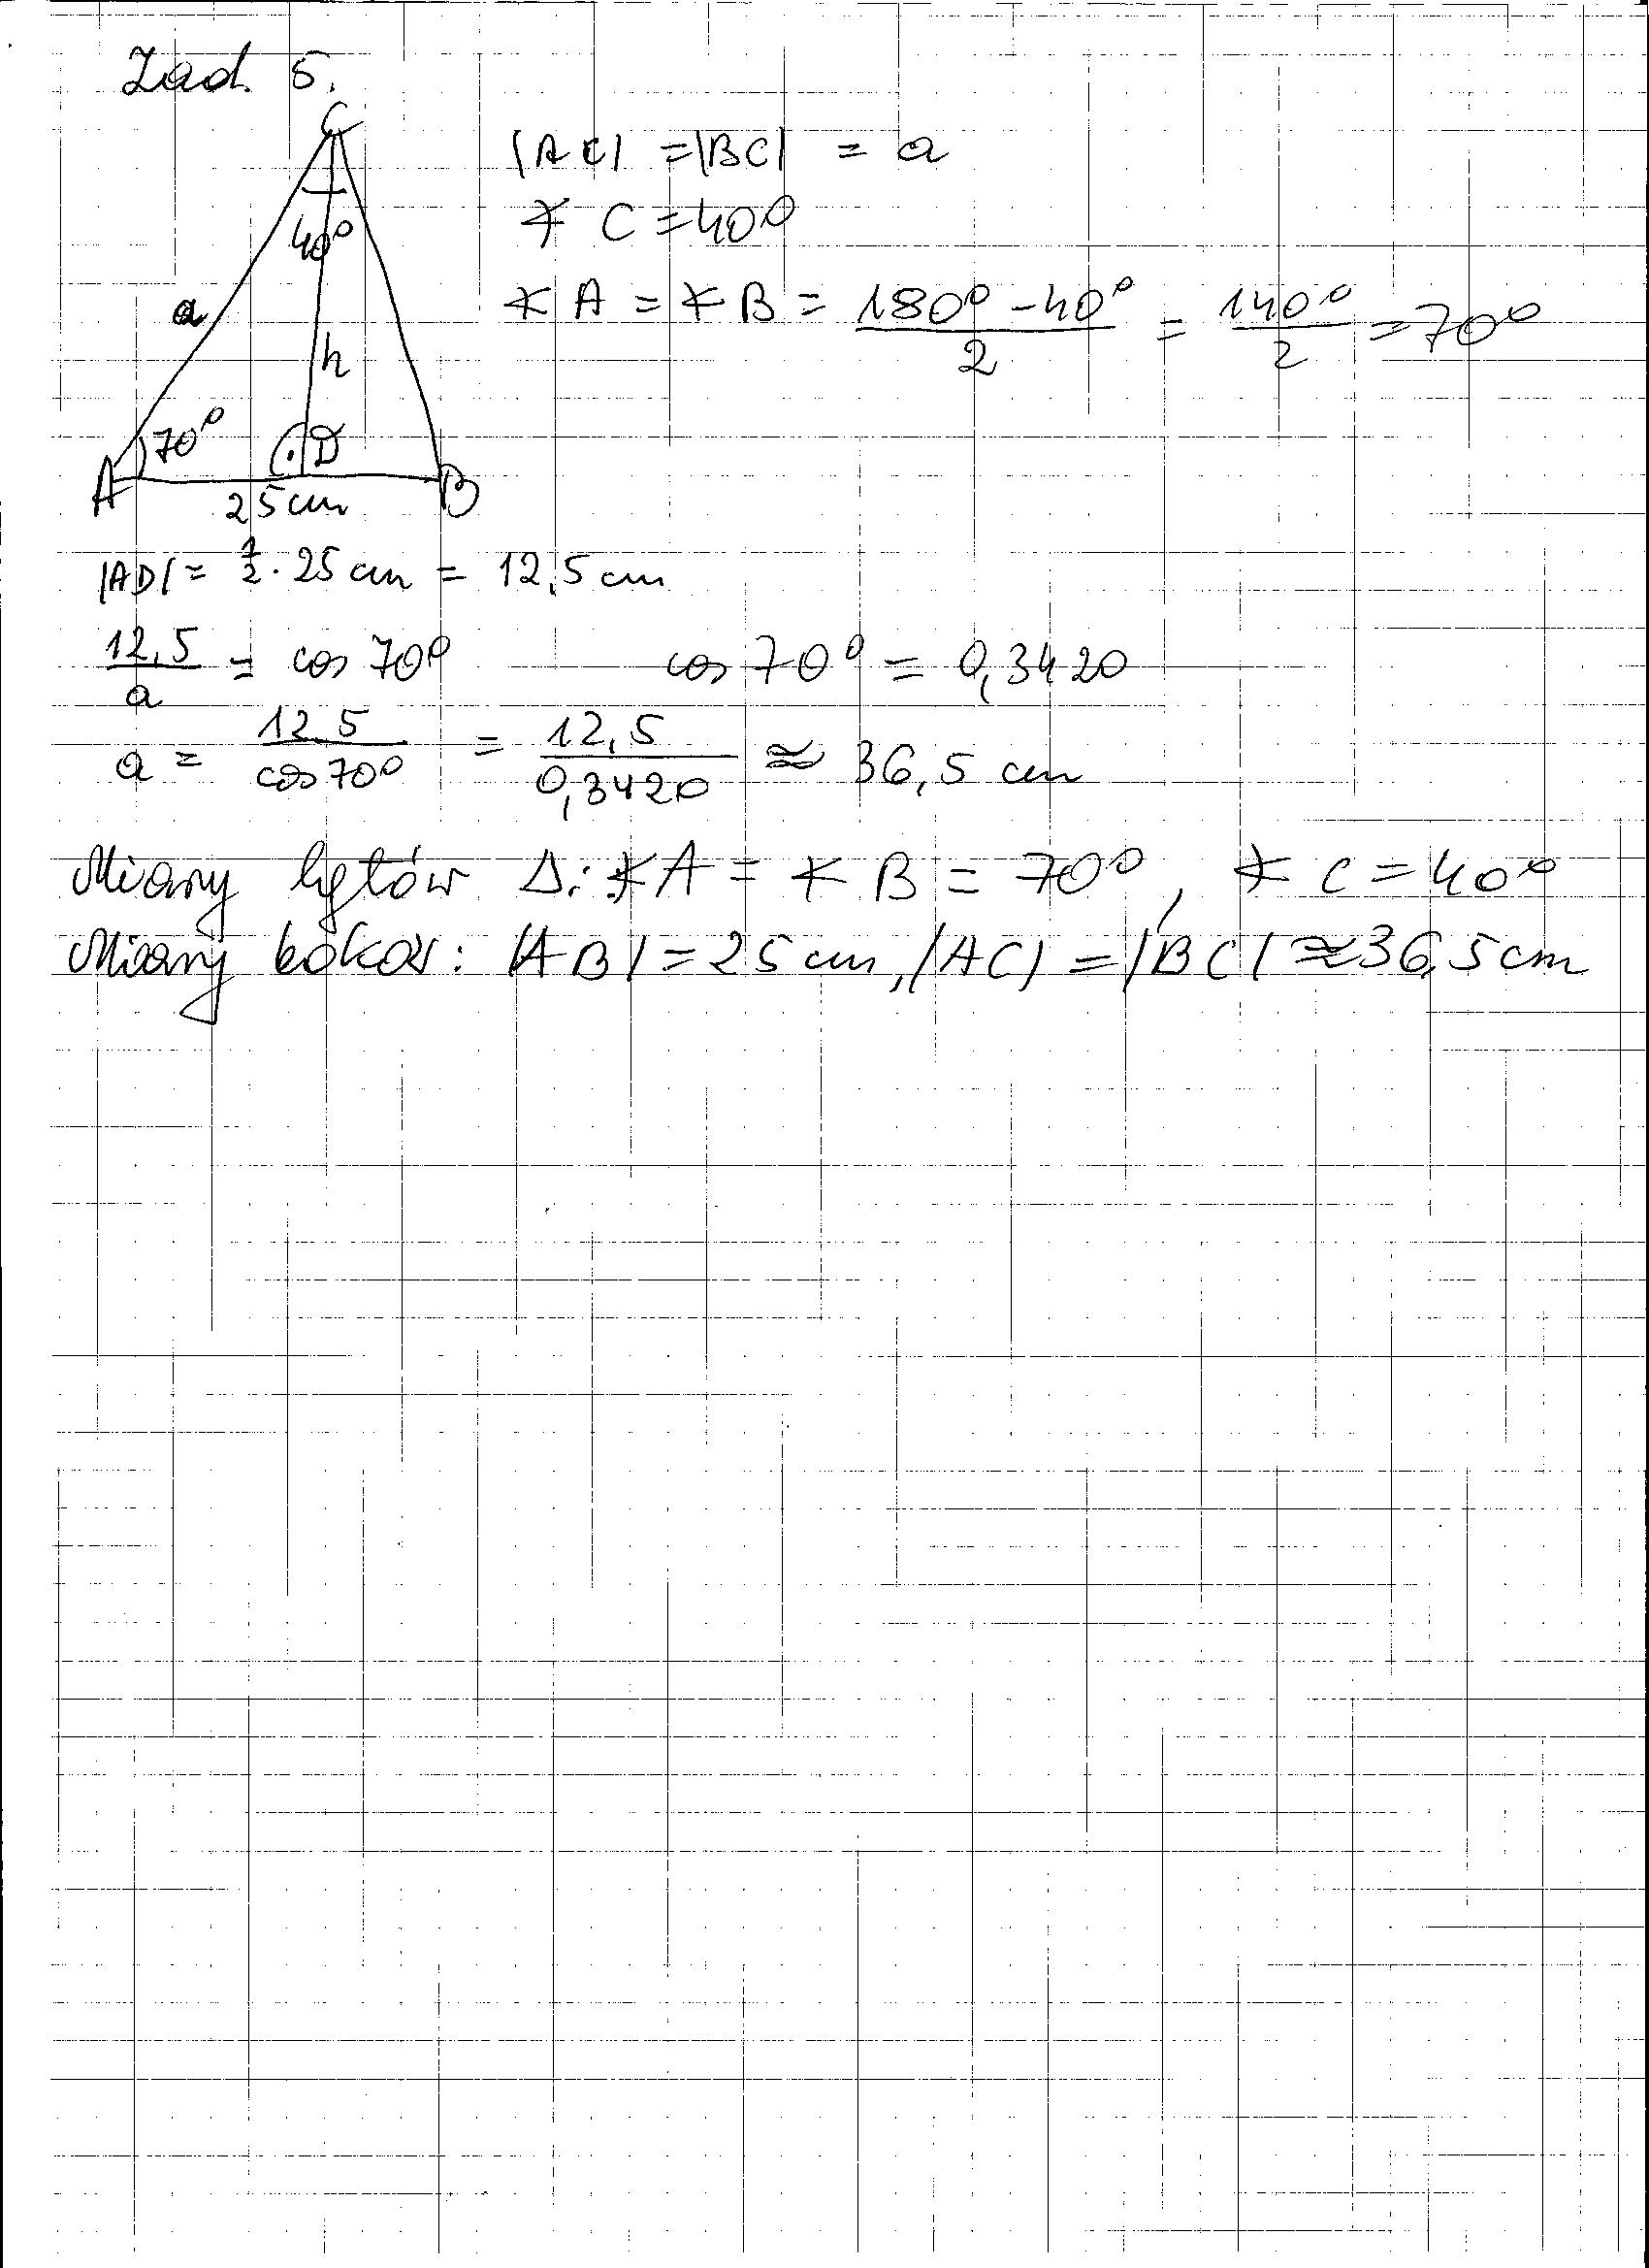 Zad. 5.
C
|AC| = |BC| = a
∢ C = 40°
40°
∢ A = ∢ B = \frac{180° - 40°}{2} = \frac{140°}{2} = 70°
a
h
70°
D
A
B
25 cm
|AD| = \frac{1}{2} · 25 cm = 12,5 cm
\frac{12,5}{a} = cos 70° cos 70° = 0,3420
a = \frac{12,5}{cos 70°} = \frac{12,5}{0,3420} ≈ 36,5 cm
Miary kątów Δ: ∢A = ∢ B = 70°, ∢ C = 40°
Miary boków: |AB| = 25 cm, |AC| = |BC| ≈ 36,5 cm